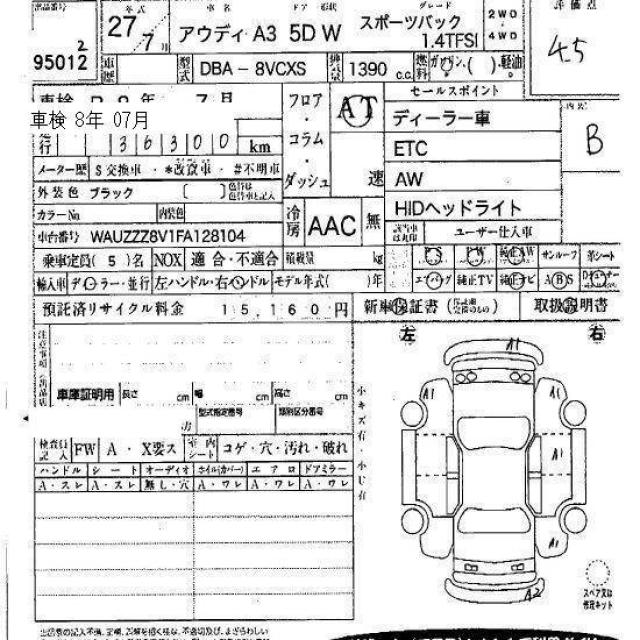 出品番号 年式 車名 ドア 形状 グレード 評価点
2 95012
27年 7月 アウディ A3 5D W スポーツバック 1.4TFSI 2WD 4WD
4.5
車歴 型式 DBA－8VCXS 排気量 1390 c.c. 燃料 ガソリン・( )・軽油
車検 8年 07月
走行 36300 km
フロア・コラム・ダッシュ AT 速
セールスポイント
ディーラー車
ETC
AW
HIDヘッドライト
内装 B
メーター歴 S 交換車・*改ざん車・#不明車
外装色 ブラック 〔 〕
カラーNo 内装色
冷房 AAC 無
車台番号 WAUZZZ8V1FA128104
該当車は丸印 ユーザー仕入車
乗車定員(5)名 NOX 適合・不適合 積載量 kg
PS PW 純正AW サンルーフ 革シート
輸入車 ディーラー・並行 左ハンドル・右ハンドル モデル年式( )年
エアバッグ 純正TV 純正ナビ ABS
預託済リサイクル料金 15,160円
新車保証書 取扱説明書
注意事項 (出品店
左 右
A1
A1 A1
A1
A1
A2
車庫証明用 長さ cm 幅 cm 高さ cm
型式指定番号 類別区分番号
小キズ有・小凹有
検査員記入 FW A・X要ス 車内シート コゲ・穴・汚れ・破れ
ハンドル シート オーディオ ホイル(カバー) エアロ ドアミラー
A・スレ A・スレ 無し・穴 A・ワレ A・ワレ A・ワレ
スペアは 修理キット